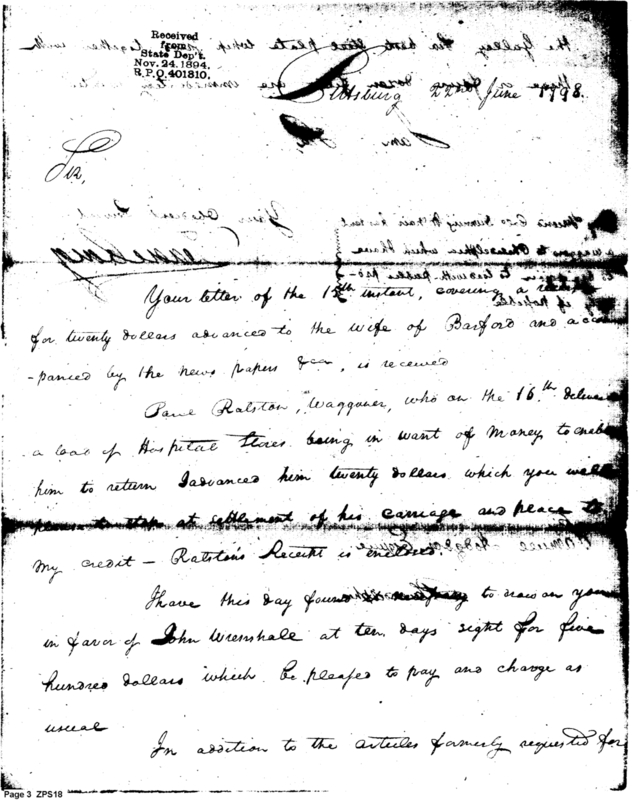 Received
from
State Dep't.
Nov. 24. 1894.
R.P.O. 401310.
Pittsburg 22d June 1798.
Sir,
Your letter of the 12th instant, covering a
for twenty dollars advanced to the wife of Barford and accom
-panied by the news papers &ca, is received
Paul Ralston, Waggoner, who on the 16th deliver
a load of Hospital Stores being in want of Money to enable
him to return I advanced him twenty dollars which you will
please to stop at settlement of his carriage and place to
my credit — Ralston's Receipt is enclosed.
I have this day found it necessary to draw on you
in favor of John Wrenshall at ten days sight for five
hundred dollars which be pleased to pay and charge as
usual
In addition to the articles formerly requested for
Page 3 ZPS18